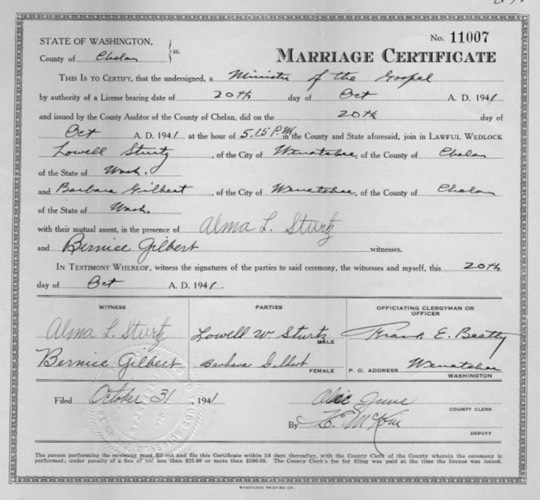 No. 11007
STATE OF WASHINGTON,
County of Chelan } ss.
MARRIAGE CERTIFICATE
THIS IS TO CERTIFY, that the undersigned, a Minister of the Gospel
by authority of a License bearing date of 20th day of Oct A. D. 1941
and issued by the County Auditor of the County of Chelan, did on the 20th day of
Oct A. D. 1941 at the hour of 5.15 P.M. in the County and State aforesaid, join in LAWFUL WEDLOCK
Lowell Sturtz, of the City of Wenatchee, of the County of Chelan
of the State of Wash.
and Barbara Gilbert, of the City of Wenatchee, of the County of Chelan
of the State of Wash.
with their mutual assent, in the presence of Alma L. Sturtz
and Bernice Gilbert witnesses.
IN TESTIMONY WHEREOF, witness the signatures of the parties to said ceremony, the witnesses and myself, this 20th
day of Oct A. D. 1941.
WITNESS PARTIES OFFICIATING CLERGYMAN OR OFFICER
Alma L. Sturtz Lowell W Sturtz MALE Frank E. Beatty
Bernice Gilbert Barbara Gilbert FEMALE P. O. ADDRESS Wenatchee
WASHINGTON
Filed October 31, 1941
COUNTY CLERK
By
DEPUTY
The person performing the ceremony must fill out and file this Certificate within 30 days thereafter, with the County Clerk of the County wherein the ceremony is
performed; under penalty of a fine of not less than $20.00 or more than $300.00. The County Clerk's fee for filing was paid at the time the license was issued.